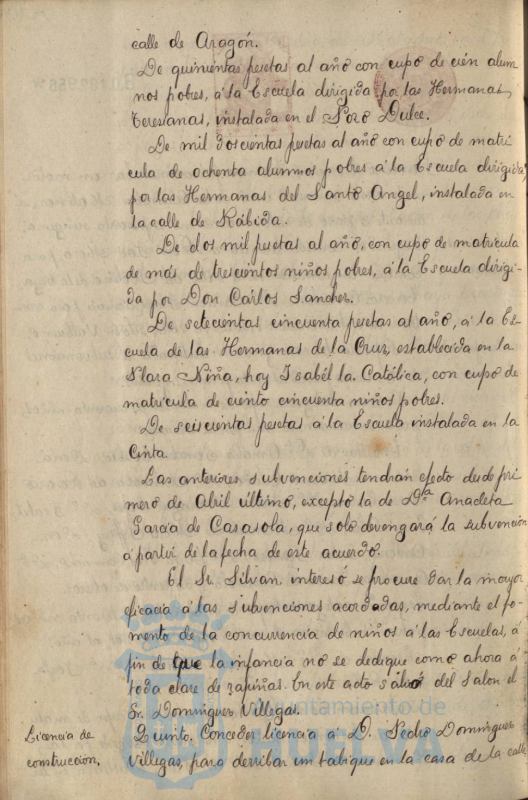 calle de Aragón.
De quinientas pesetas al año con cupo de cien alum
nos pobres, á la Escuela dirigida por las Hermanas
Teresianas, instalada en el Pozo Dulce.
De mil doscientas pesetas al año con cupo de matri
cula de ochenta alumnos pobres á la Escuela dirigida,
por las Hermanas del Santo Angel, instalada en
la calle de Rábida.
De dos mil pesetas al año, con cupo de matricula
de más de trescientos niños pobres, á la Escuela dirigi-
da por Don Carlos Sanchez.
De setecientas cincuenta pesetas al año, á la Es-
cuela de las Hermanas de la Cruz, establecida en la
Plaza Niña, hoy Isabél la Católica, con cupo de
matricula de ciento cincuenta niños pobres.
De seiscientas pesetas á la Escuela instalada en la
Cinta.
Las anteriores subvenciones tendrán efecto desde pri
mero de Abril último, excepto la de Dña Anacleta
Garcia de Casasola, que solo devengará la subvención
á partir de la fecha de este acuerdo.
El Sr. Silvan interesó se procure dar la mayor
eficacia á las subvenciones acordadas, mediante el fo-
mento de la concurrencia de niños á las Escuelas, á
fin de que la infancia no se dedique como ahora á
toda clase de In este acto salió del salon el
Sr. Dominguez Villegas.
Licencia de construccion,
Quinto. Conceder licencia a D. Pedro Dominguez
Villegas, para derribar un tabique en la casa de la calle
Ayuntamiento de
HUELVA